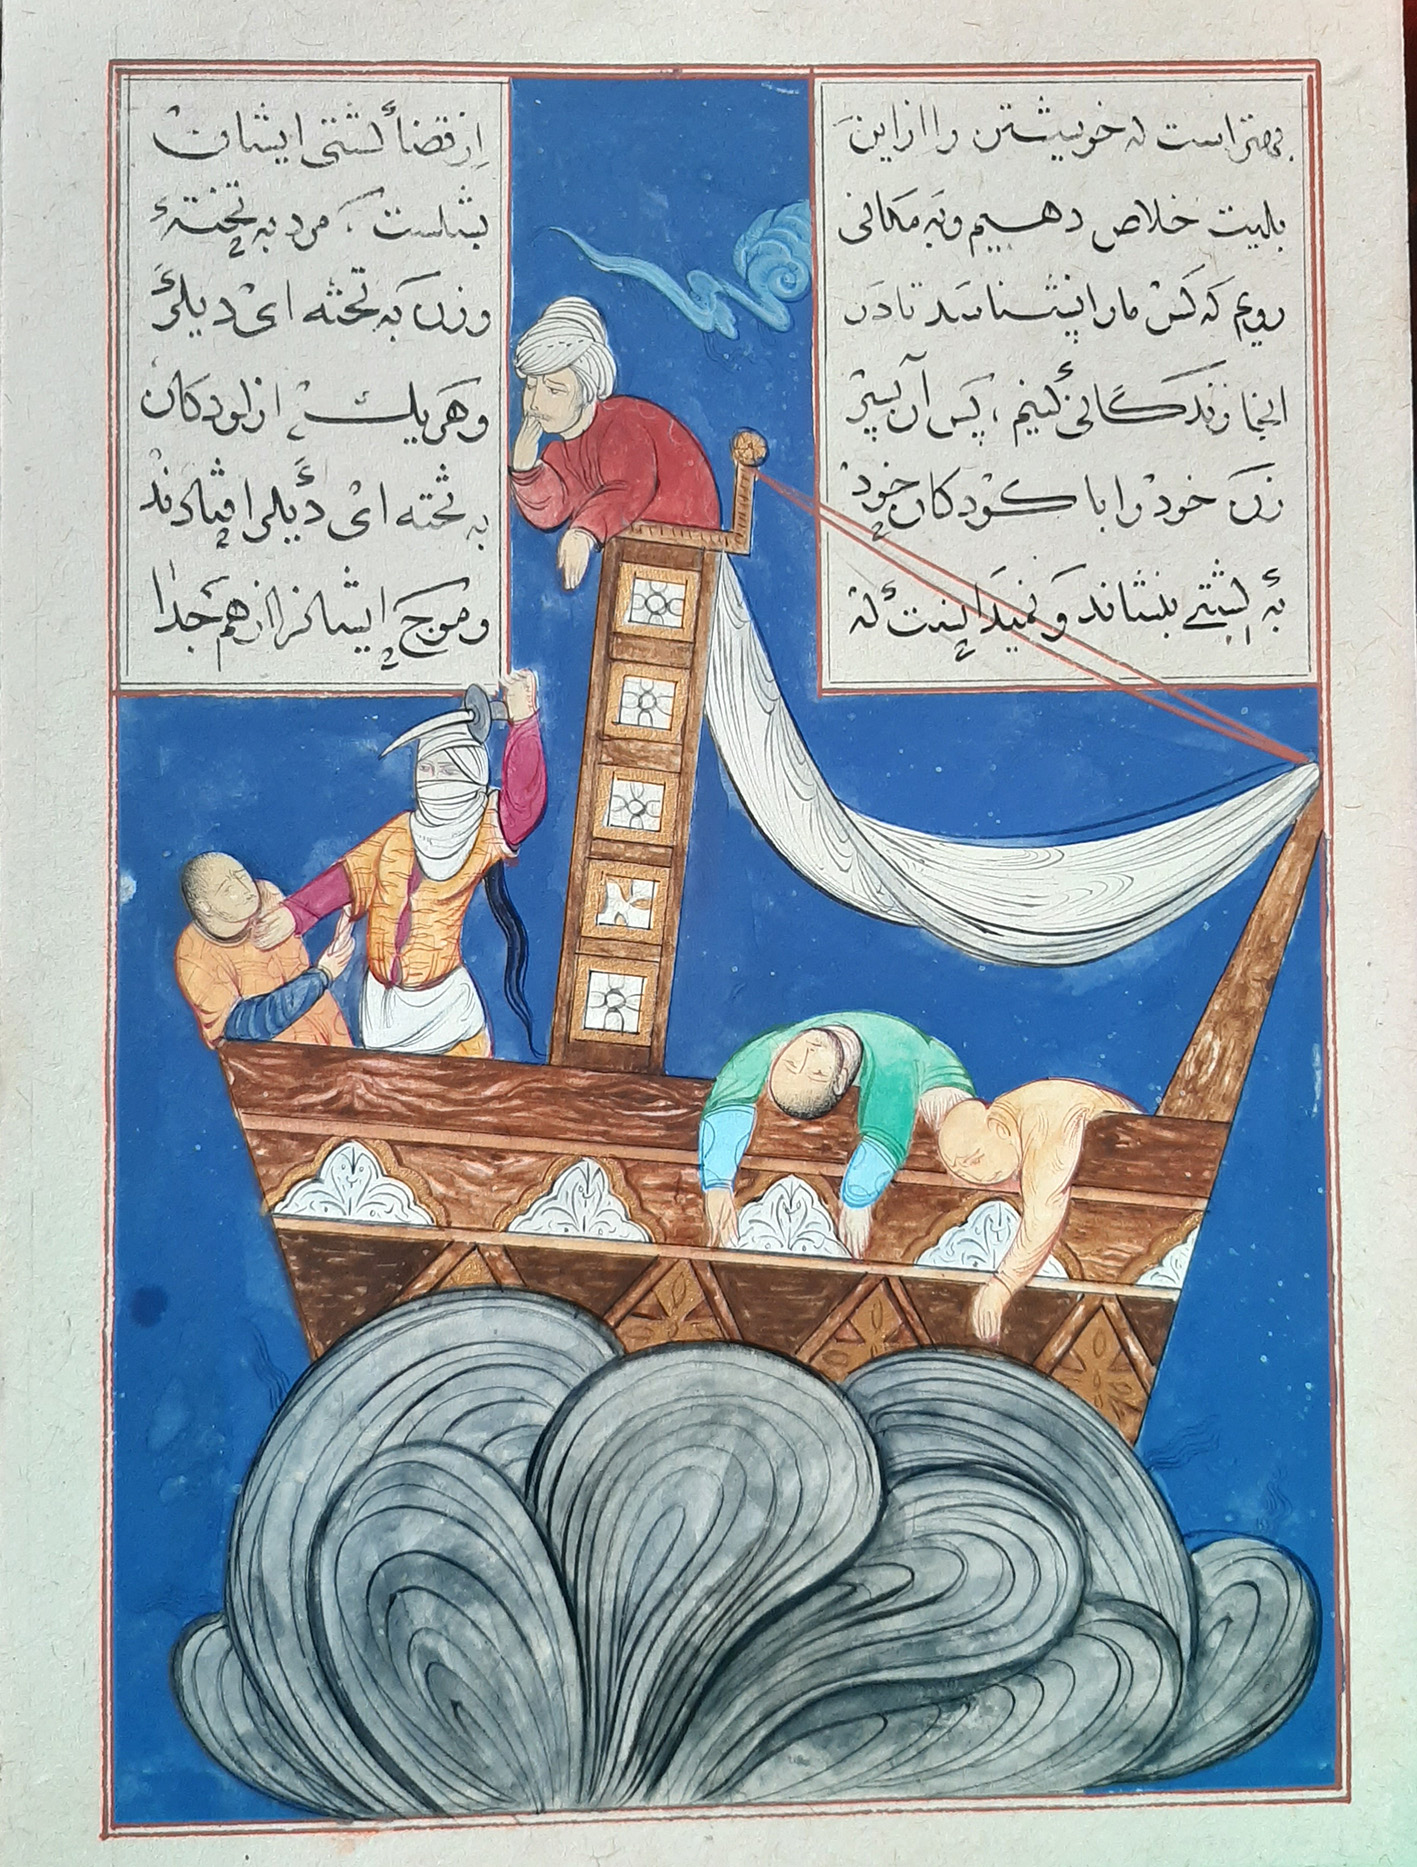 بهتر است که خویشتن را از این
بلیت خلاص دهیم و به مکانی
رویم که کس ما را نشناسد تا در
آنجا زندگانی کنیم، پس آن پسر
زن خود را با کودکان خود
به کشتی بنشاند و نمیدانست که
از قضا کشتی ایشان
بشکست، مرد به تخته
و زن به تخته ای دیگر
و هر یک از کودکان
به تخته ای دیگر افتادند
و موج ایشانرا از هم جدا